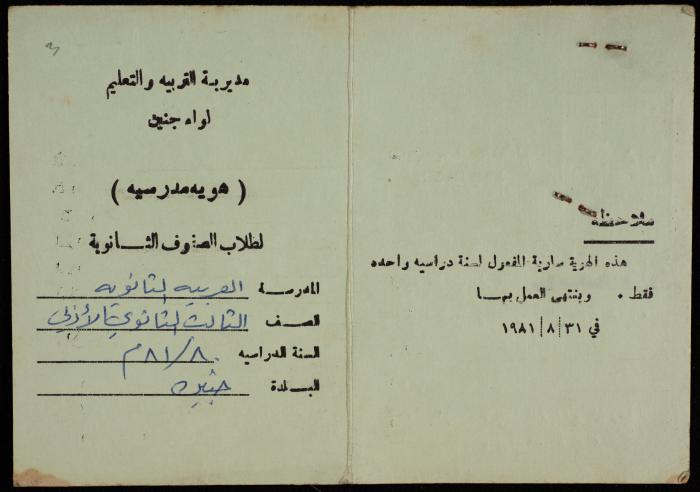 مديرية التربيه والتعليم
لواء جنين
( هويه مدرسيه )
لطلاب الصفوف الثانوية
المدرسة العربيه الثانويه
الصف الثالث الثانوي الأدبي
السنة الدراسيه ٨١/٨٠م
البلدة
ملاحظه
هذه الهوية سارية المفعول لسنة دراسيه واحده
فقط . وينتهى العمل بها
في ٣١ / ٨ / ١٩٨١